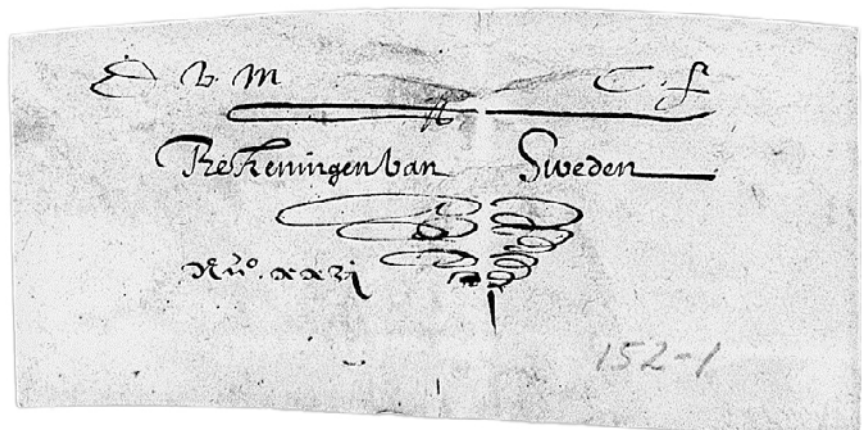 D v M C. f
Rekeningen van Sweden
Nũo. xxij
152-1